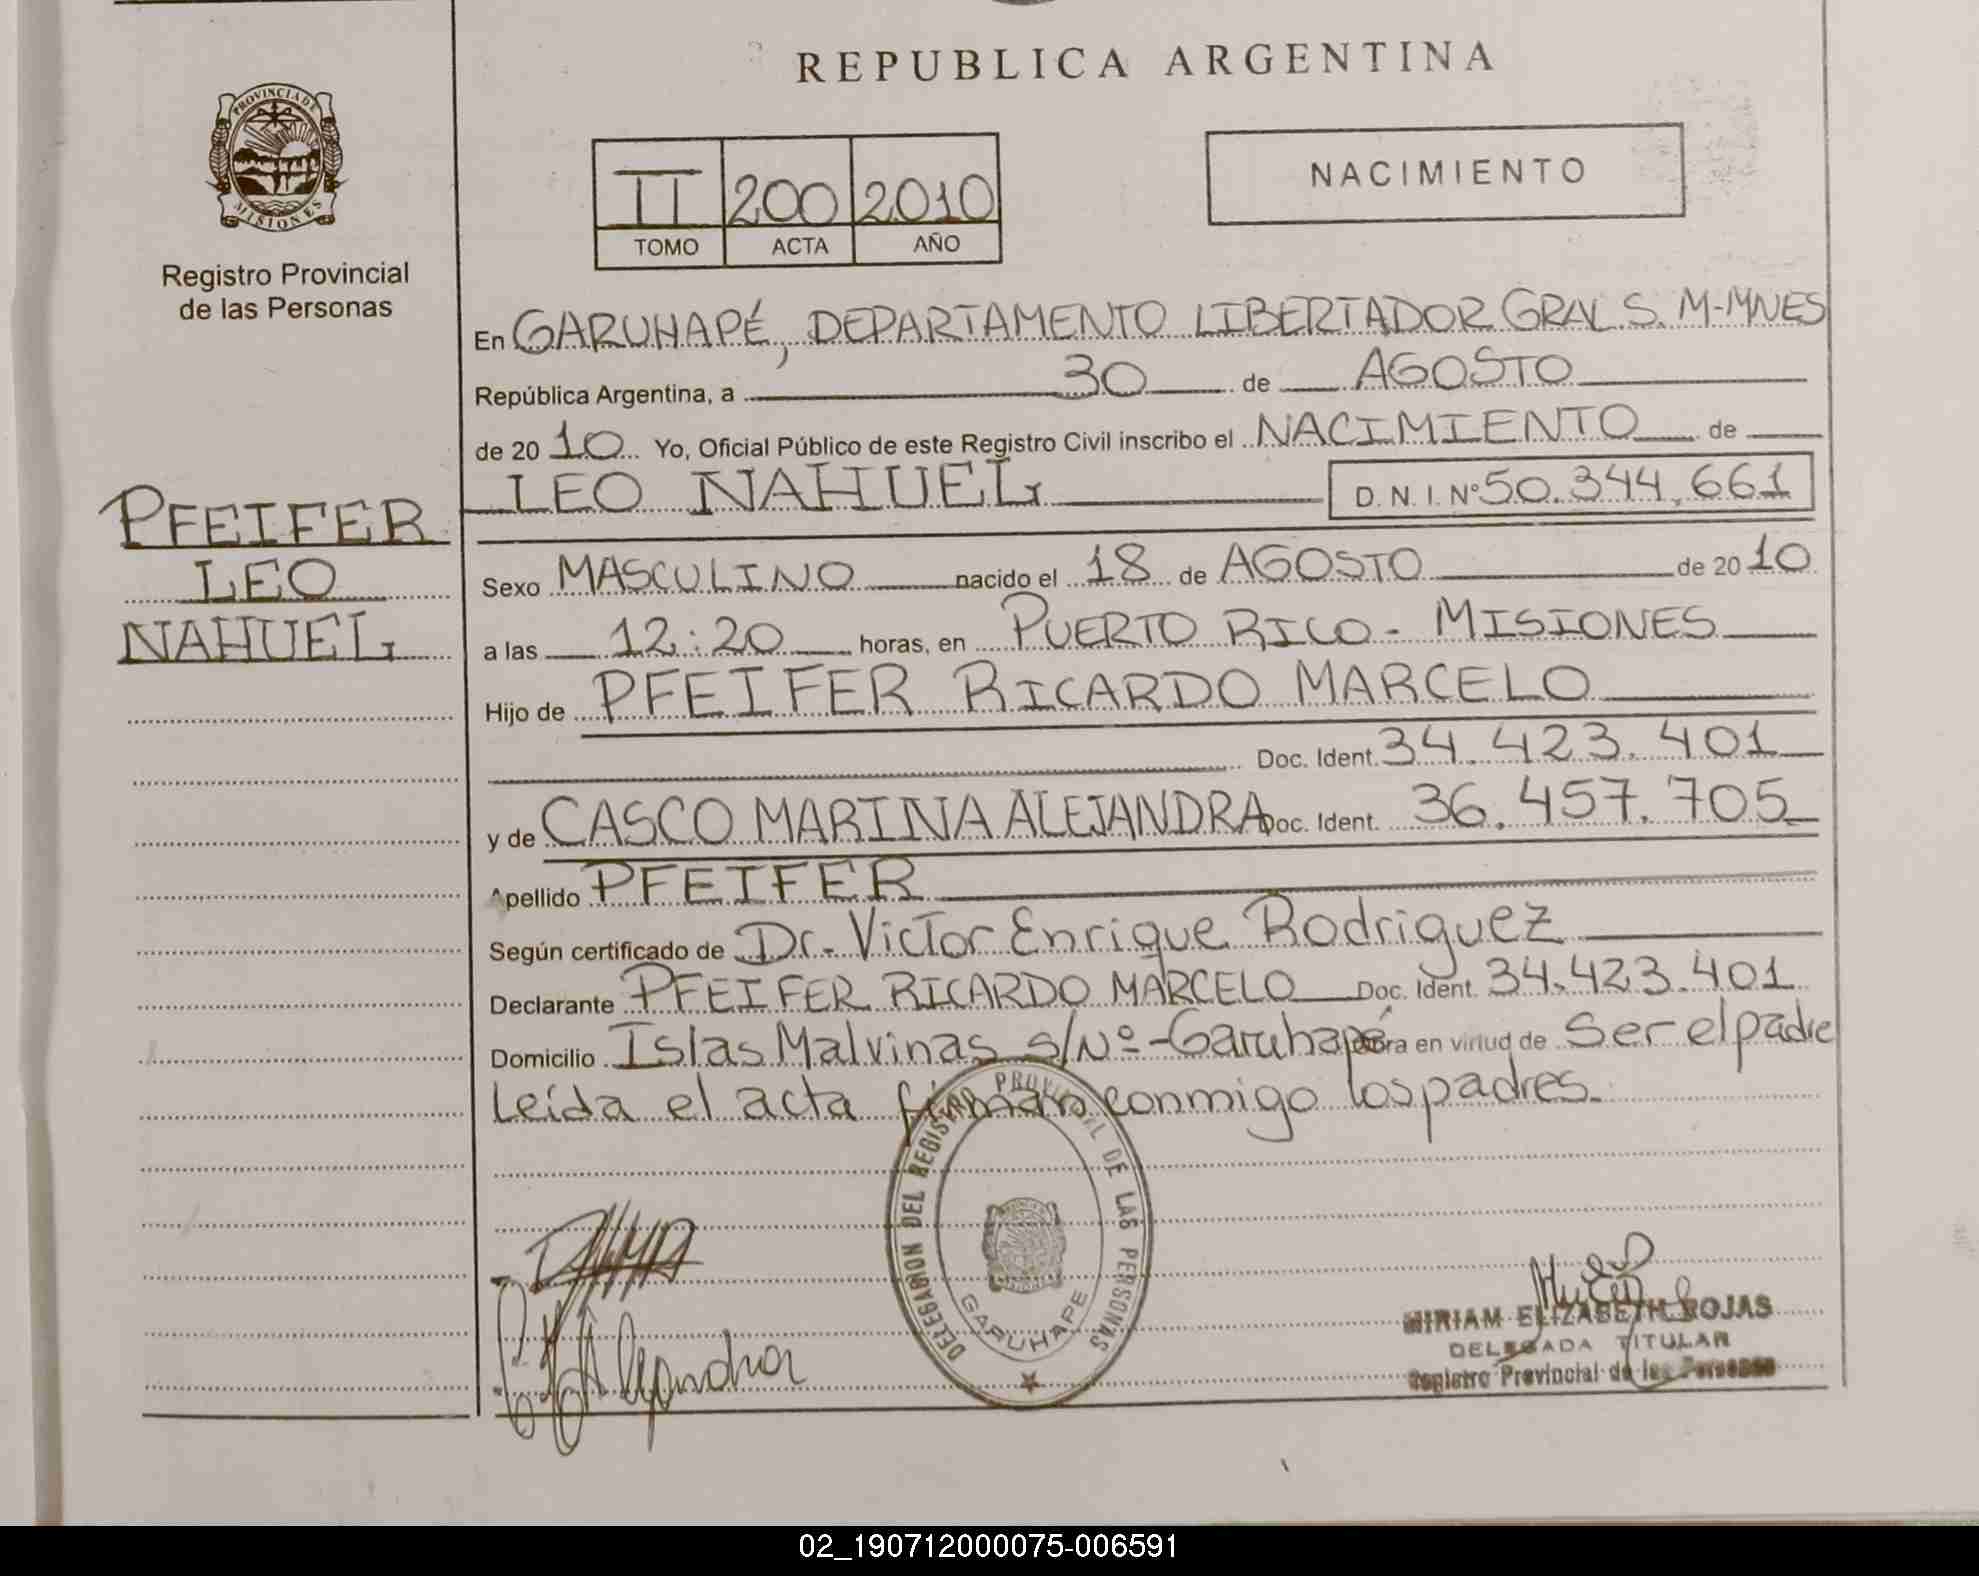 REPUBLICA ARGENTINA
PROVINCIA DE
MISIONES
Registro Provincial
de las Personas
II 200 2010
TOMO ACTA AÑO
NACIMIENTO
En GARUHAPÉ, DEPARTAMENTO LIBERTADOR GRAL S. M-MNES
República Argentina, a 30 de AGOSTO
de 20 10 Yo, Oficial Público de este Registro Civil inscribo el NACIMIENTO de
LEO NAHUEL D. N. I. Nº 50.344.661
PFEIFER
LEO
NAHUEL
Sexo MASCULINO nacido el 18 de AGOSTO de 20 10
a las 12:20 horas, en PUERTO RICO - MISIONES
Hijo de PFEIFER RICARDO MARCELO
Doc. Ident. 34.423.401
y de CASCO MARINA ALEJANDRA Doc. Ident. 36.457.705
Apellido PFEIFER
Según certificado de Dr. Victor Enrique Rodriguez
Declarante PFEIFER RICARDO MARCELO Doc. Ident. 34.423.401
Domicilio Islas Malvinas s/Nº - Garuhapé obra en virtud de Ser el padre
Leída el acta firman conmigo los padres.
DELEGACION DEL REGISTRO PROVINCIAL DE LAS PERSONAS
GARUHAPE
Alejandra
MIRIAM ELIZABETH ROJAS
DELEGADA TITULAR
Registro Provincial de las Personas
02_190712000075-006591